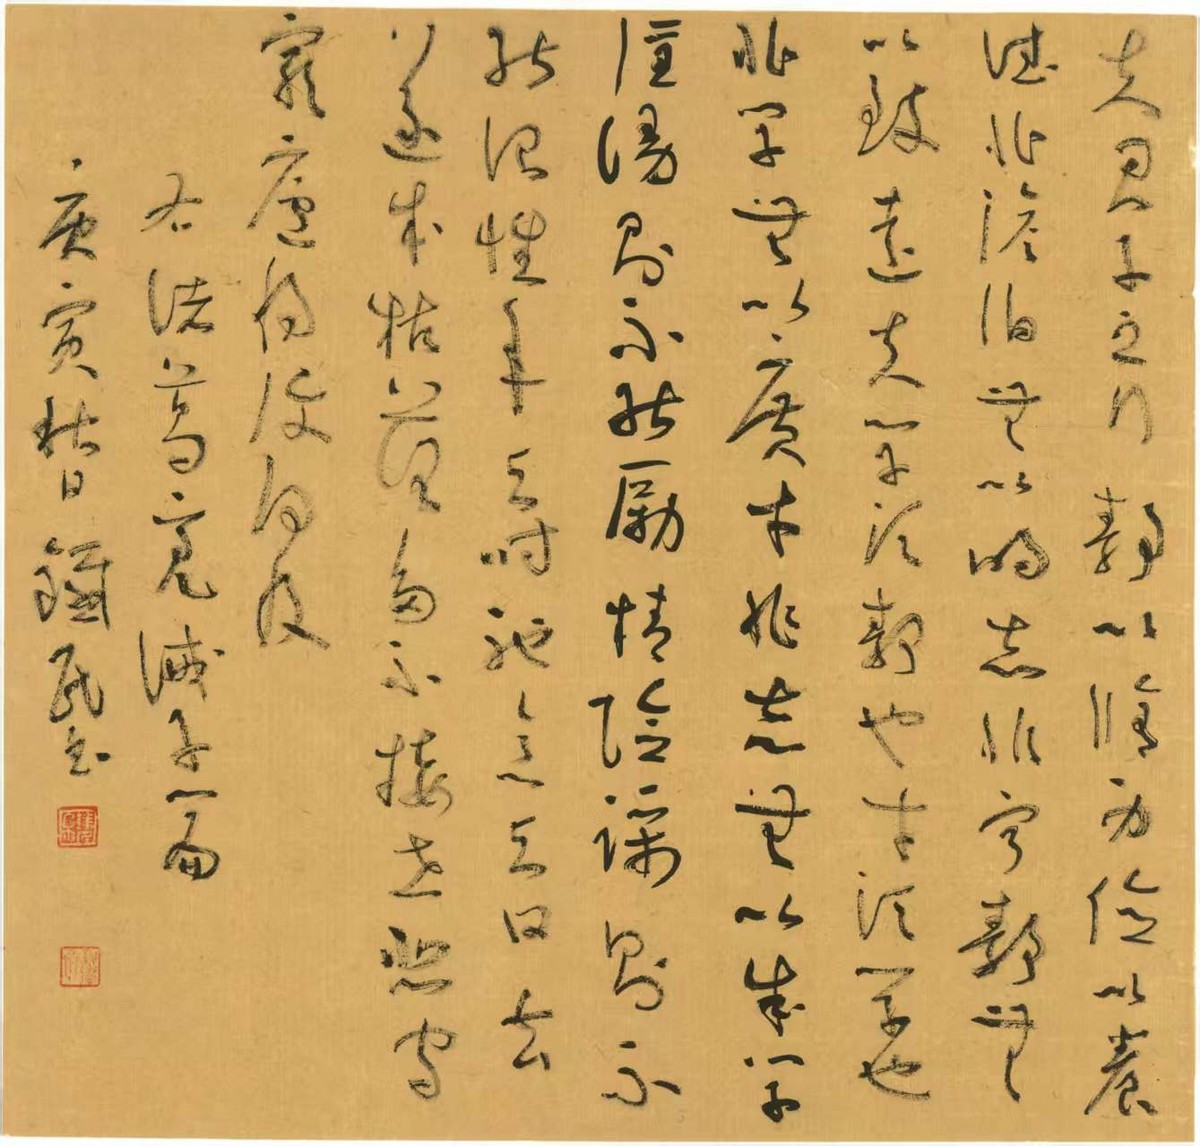 夫君子之行靜以脩身儉以養
德非澹泊無以明志非寧靜無
以致遠夫學須靜也才須學也
非學無以廣才非志無以成學
淫漫則不能勵精險躁則不
能治性年與時馳意與日去
遂成枯落多不接世悲守
窮廬將復何及
右諸葛亮誡子篇
庚寅秋日民書